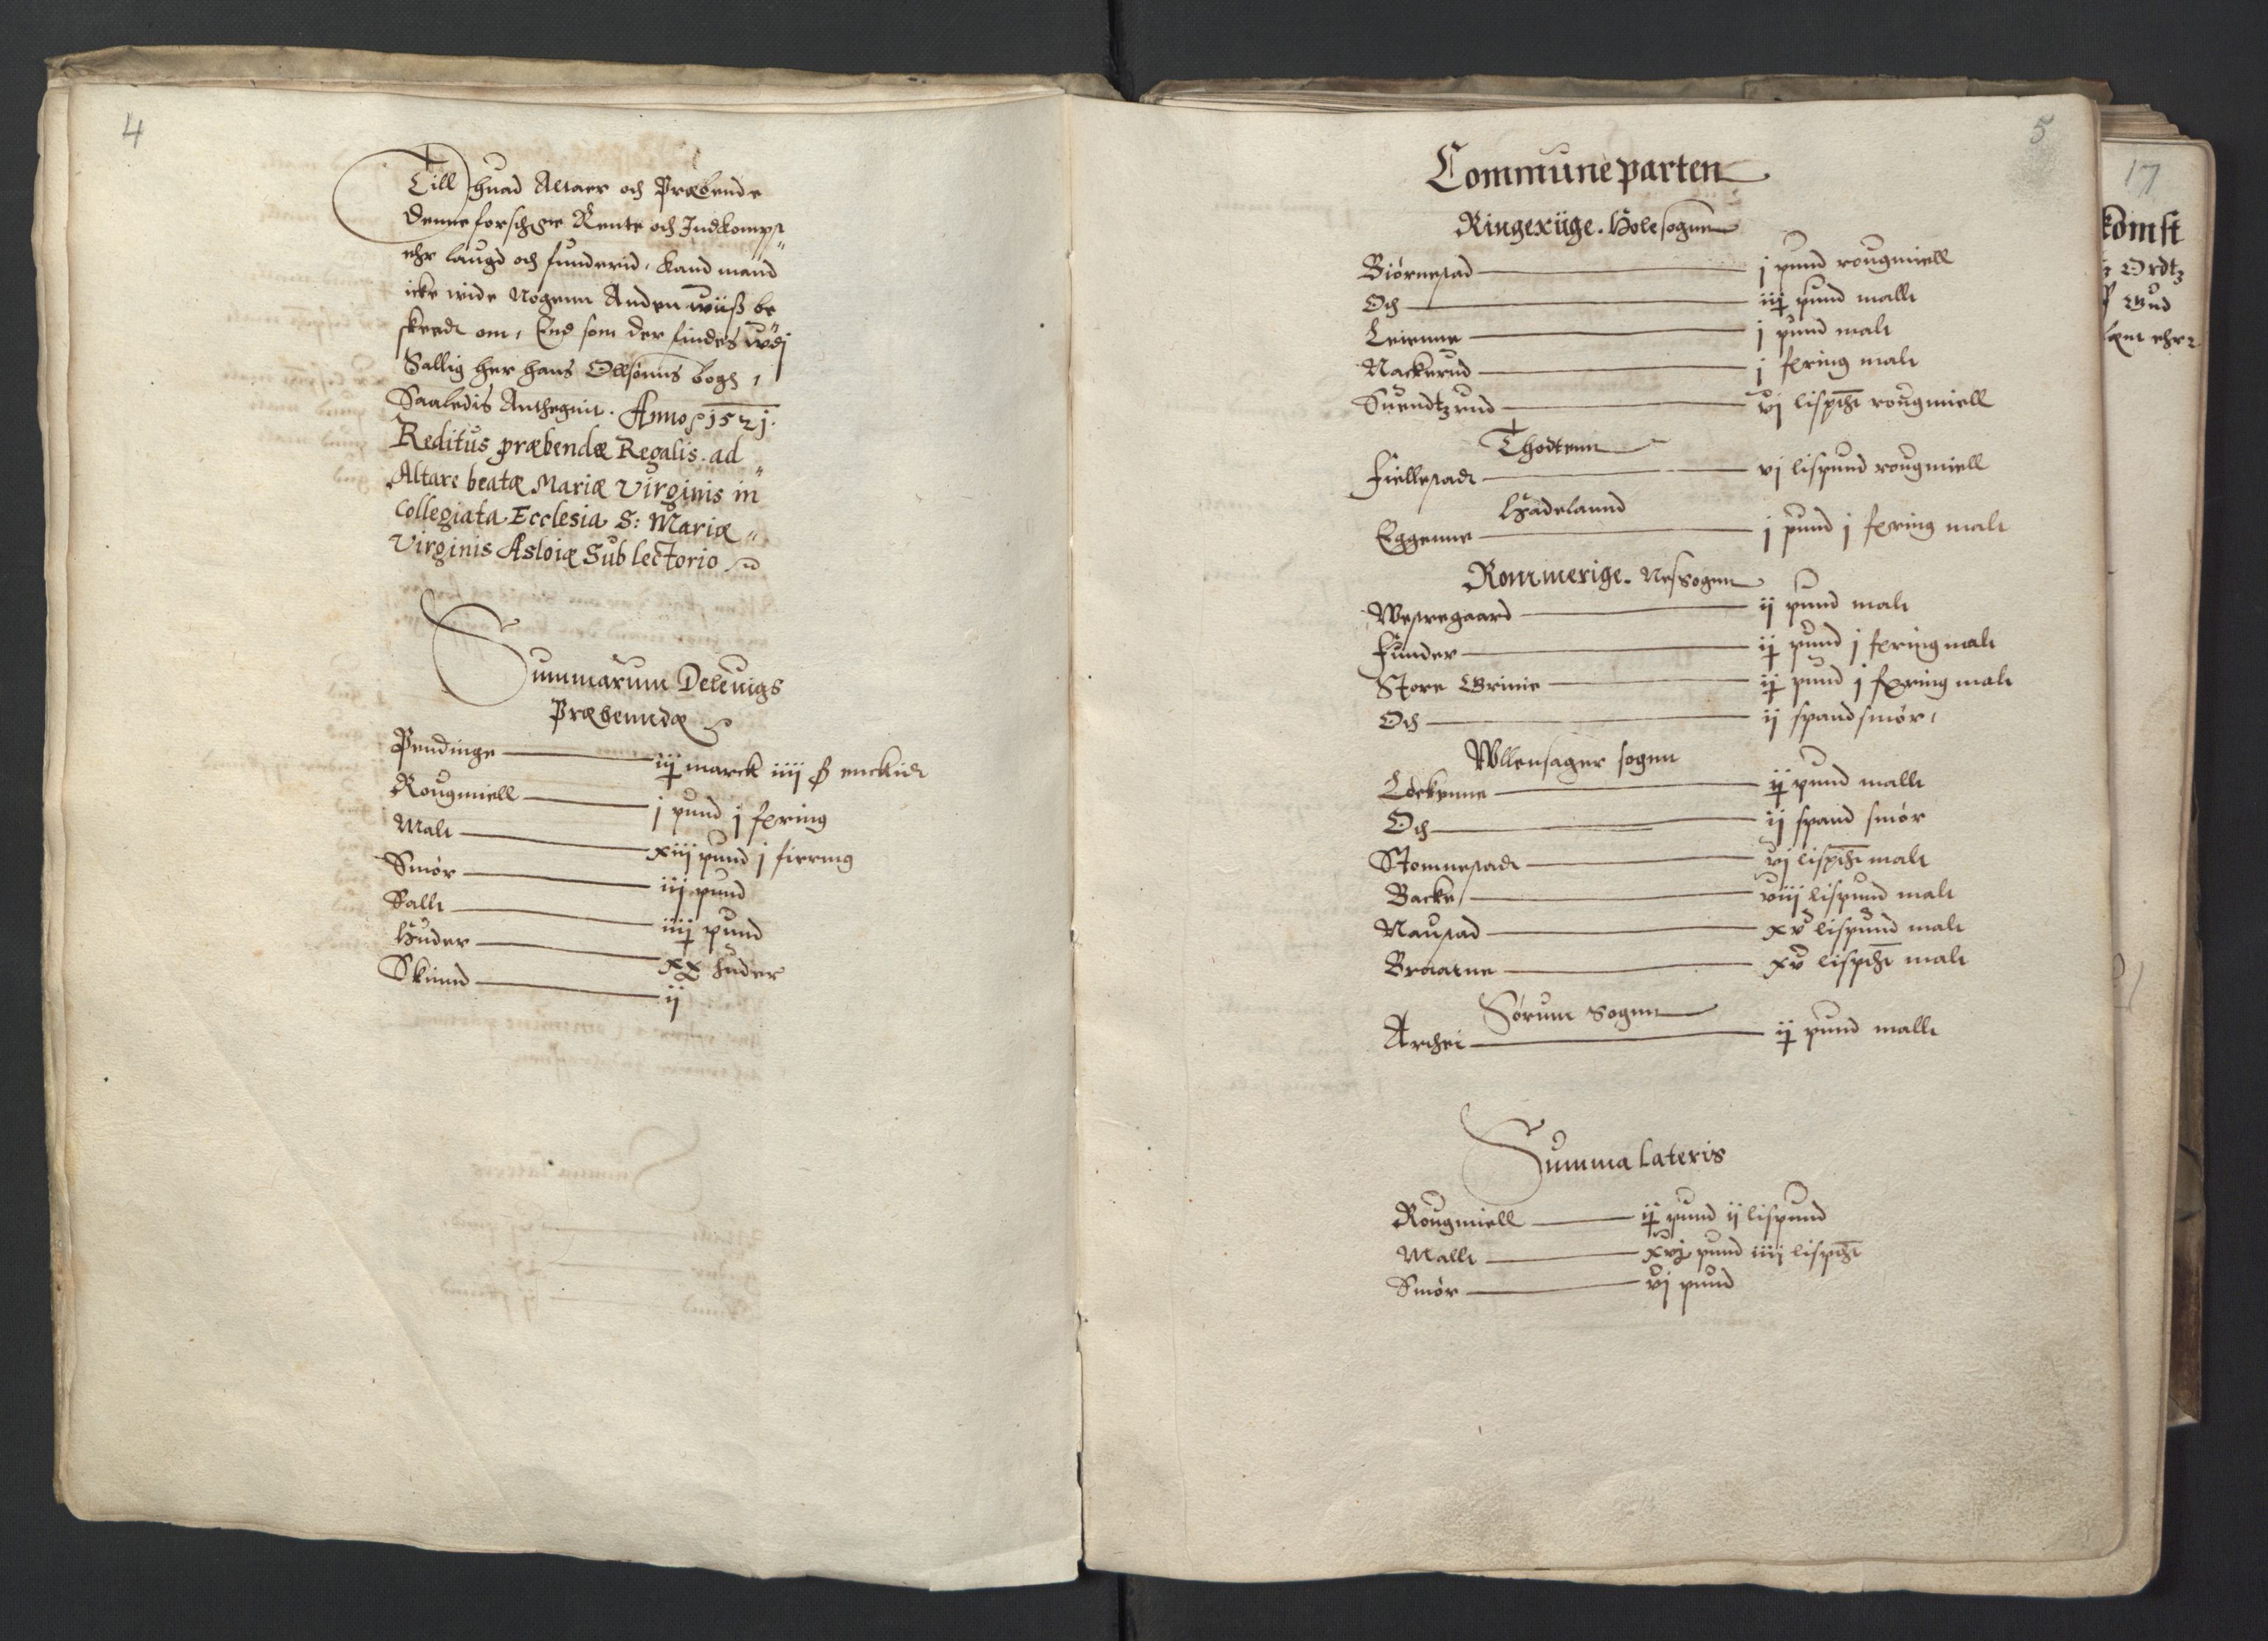 4
Till huad Altaer och Præbende
denne forschreffne Rente och Indkompst
ehr laugd och funderid, kand mand
icke wide Nogenn Anden wiiß be
skeedt om, End som der findes wdj
Sallig her hans Ollsønns bogh,
Saaledis Anthegnit. Anno 1521.
Reditus præbendæ Regalis. ad
Altare beatæ Mariæ Virginis in
Collegiata Ecclesia S: Mariæ
Virginis Asloiæ Sub lectorio
Summarum Deleuigs
Præbenndæ
Pendinge — iiij marck iiij ß enckidt
Rougmiell — j pund j fering
Malt — xiij pund j fierring
Smør — iij pund
Sallt — iiij pund
Huder — xx huder
Skinnd — ij
5
Communeparten
Ringeriige. Hole sognn
Biørnestad — j pund rougmiell
Och — iij pund mallt
Leienne — j pund malt
Nackerud — j fering malt
Suendtzrud — vj lispundt rougmiell
Thodtenn
Fiellestadt — vj lispund rougmiell
Hadelannd
Eggenne — j pund j fering malt
Rommerige. Nes sogenn
Westregaard — ij pund malt
Funder — ij pund j fering malt
Store Grinie — ij pund j fering malt
Och — ij spand smør,
Wllensager sogen
Løekenne — ij pund mallt
Och — ij spand smør
Stomnestadt — vj lispundt malt
Backe — viij lispund malt
Naustad — xv lispund malt
Braatne — xv lispundt malt
Sørum Sogenn
Archei — ij pund mallt
Summa Lateris
Rougmiell — ij pund ij lispund
Mallt — xvj pund iiij lispundt
Smør — vj pund
17
komst
Ordtz
Gud